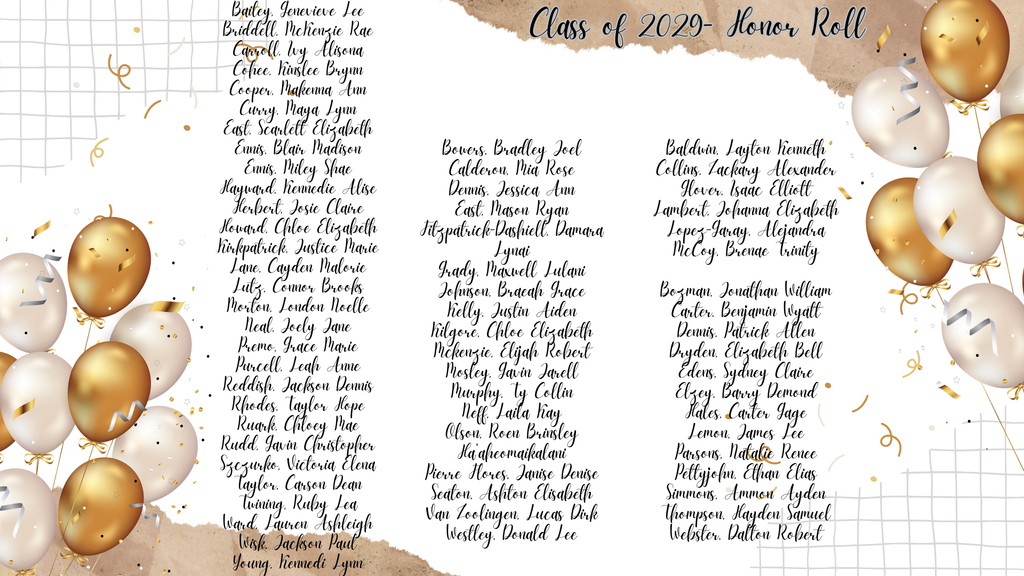 Class of 2029- Honor Roll
Bailey, Genevieve Lee
Briddell, McKenzie Rae
Carroll, Ivy Alisona
Cohee, Kinslee Brynn
Cooper, Makenna Ann
Curry, Maya Lynn
East, Scarlett Elizabeth
Ennis, Blair Madison
Ennis, Miley Shae
Hayward, Kennedie Alise
Herbert, Josie Claire
Howard, Chloe Elizabeth
Kirkpatrick, Justice Marie
Lane, Cayden Malorie
Lutz, Connor Brooks
Morton, London Noelle
Neal, Joely Jane
Premo, Grace Marie
Purcell, Leah Anne
Reddish, Jackson Dennis
Rhodes, Taylor Hope
Ruark, Chloey Mae
Rudd, Gavin Christopher
Szczurko, Victoria Elena
Taylor, Carson Dean
Twining, Ruby Lea
Ward, Lauren Ashleigh
Wisk, Jackson Paul
Young, Kennedi Lynn
Bowers, Bradley Joel
Calderon, Mia Rose
Dennis, Jessica Ann
East, Mason Ryan
Fitzpatrick-Dashiell, Damara
Lynai
Grady, Maxwell Lulani
Johnson, Braeah Grace
Kelly, Justin Aiden
Kilgore, Chloe Elizabeth
Mckenzie, Elijah Robert
Mosley, Gavin Jarell
Murphy, Ty Collin
Neff, Laila Kay
Olson, Roen Brinsley
Ha'aheomaikalani
Pierre Flores, Janise Denise
Seaton, Ashton Elisabeth
Van Zoolingen, Lucas Dirk
Westley, Donald Lee
Baldwin, Layton Kenneth
Collins, Zackary Alexander
Glover, Isaac Elliott
Lambert, Johanna Elizabeth
Lopez-Garay, Alejandra
McCoy, Brenae Trinity
Bozman, Jonathan William
Carter, Benjamin Wyatt
Dennis, Patrick Allen
Dryden, Elizabeth Bell
Edens, Sydney Claire
Elzey, Barry Demond
Hales, Carter Gage
Lemon, James Lee
Parsons, Natalie Renee
Pettyjohn, Ethan Elias
Simmons, Ammon Ayden
Thompson, Hayden Samuel
Webster, Dalton Robert